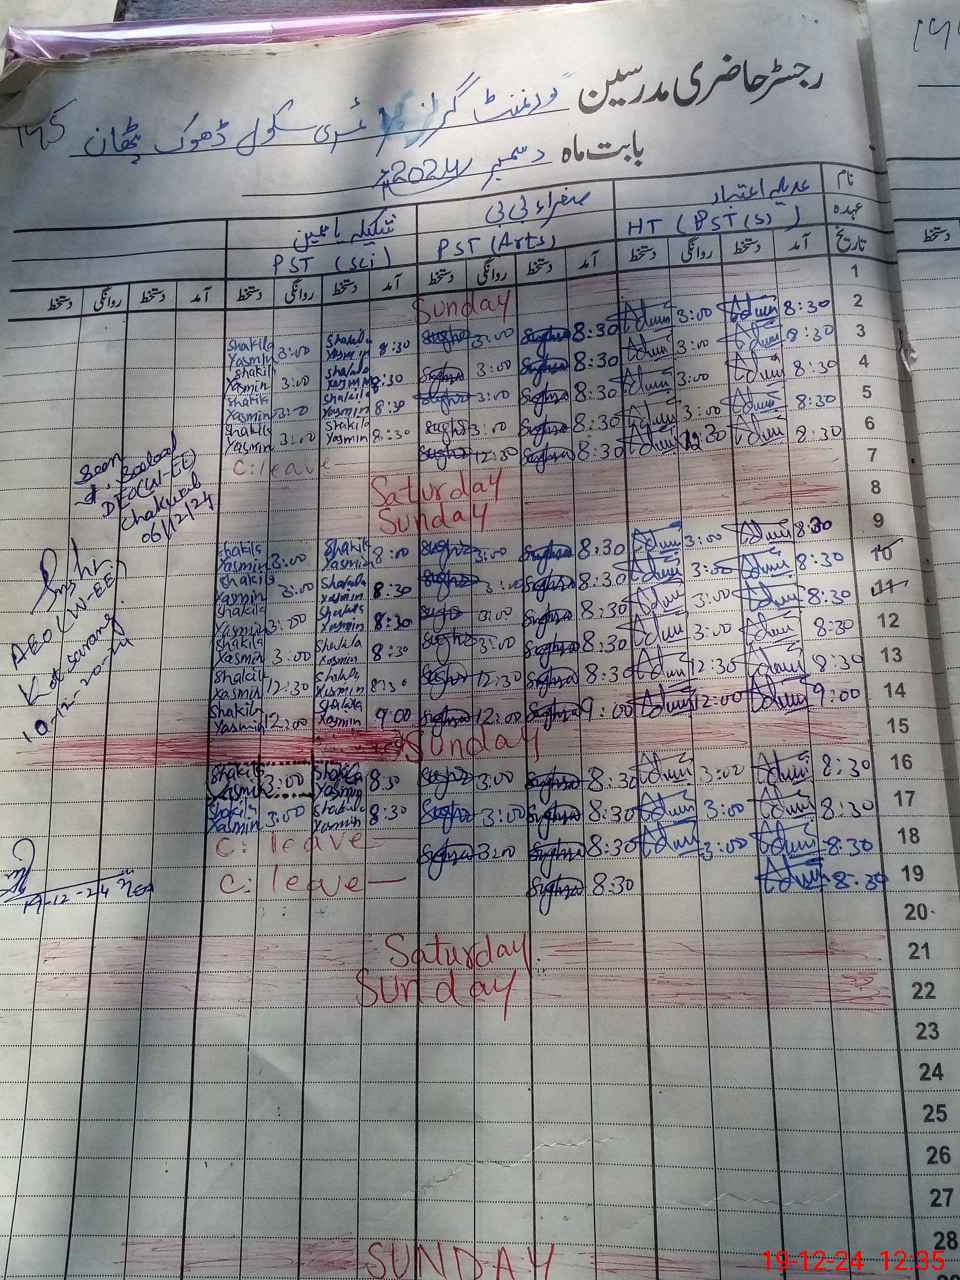 رجسٹر حاضری مدرسین گورنمنٹ گرلز پرائمری سکول ڈھوک پٹھان
145
بابت ماہ دسمبر 2024ء
نام عدیلہ اعتبار صغراء بی بی شکیلہ یاسمین
عہدہ HT (PST(S)) PST (Arts) PST (Sci)
تاریخ آمد دستخط روانگی دستخط آمد دستخط روانگی دستخط آمد دستخط روانگی دستخط آمد دستخط روانگی دستخط
1 Sunday
2 8:30 3:00 8:30 Sughra 3:00 Sughra 8:30 Shakila Yasmin 3:00 Shakila Yasmin
3 8:30 3:00 8:30 Sughra 3:00 Sughra 8:30 Shakila Yasmin 3:00 Shakila Yasmin
4 8:30 3:00 8:30 Sughra 3:00 Sughra 8:30 Shakila Yasmin 3:00 Shakila Yasmin
5 8:30 3:00 8:30 Sughra 3:00 Sughra 8:30 Shakila Yasmin 3:00 Shakila Yasmin
6 8:30 12:30 8:30 Sughra 12:00 Sughra C: leave
7 Saturday
8 Sunday
9 8:30 3:00 8:30 Sughra 3:00 Sughra 8:00 Shakila Yasmin 3:00 Shakila Yasmin
10 8:30 3:00 8:30 Sughra 3:00 Sughra 8:30 Shakila Yasmin 3:00 Shakila Yasmin
11 8:30 3:00 8:30 Sughra 3:00 Sughra 8:30 Shakila Yasmin 3:00 Shakila Yasmin
12 8:30 3:00 8:30 Sughra 3:00 Sughra 8:30 Shakila Yasmin 3:00 Shakila Yasmin
13 8:30 12:30 8:30 Sughra 12:30 Sughra 8:30 Shakila Yasmin 12:30 Shakila Yasmin
14 9:00 12:00 9:00 Sughra 12:00 Sughra 9:00 Shakila Yasmin 12:00 Shakila Yasmin
15 Sunday
16 8:30 3:00 8:30 Sughra 3:00 Sughra 8:30 Shakila Yasmin 3:00 Shakila Yasmin
17 8:30 3:00 8:30 Sughra 3:00 Sughra 8:30 Shakila Yasmin 3:00 Shakila Yasmin
18 8:30 3:00 8:30 Sughra 3:00 Sughra C: leave
19 8:30 8:30 Sughra C: leave
20
21 Saturday
22 Sunday
23
24
25
26
27
28
SUNDAY
Seen
DEO(W-EE)
Chakwal
06/12/24
AEO (W-EE)
Kot sarang
10-12-2024
19-12-24
19-12-24 12:35